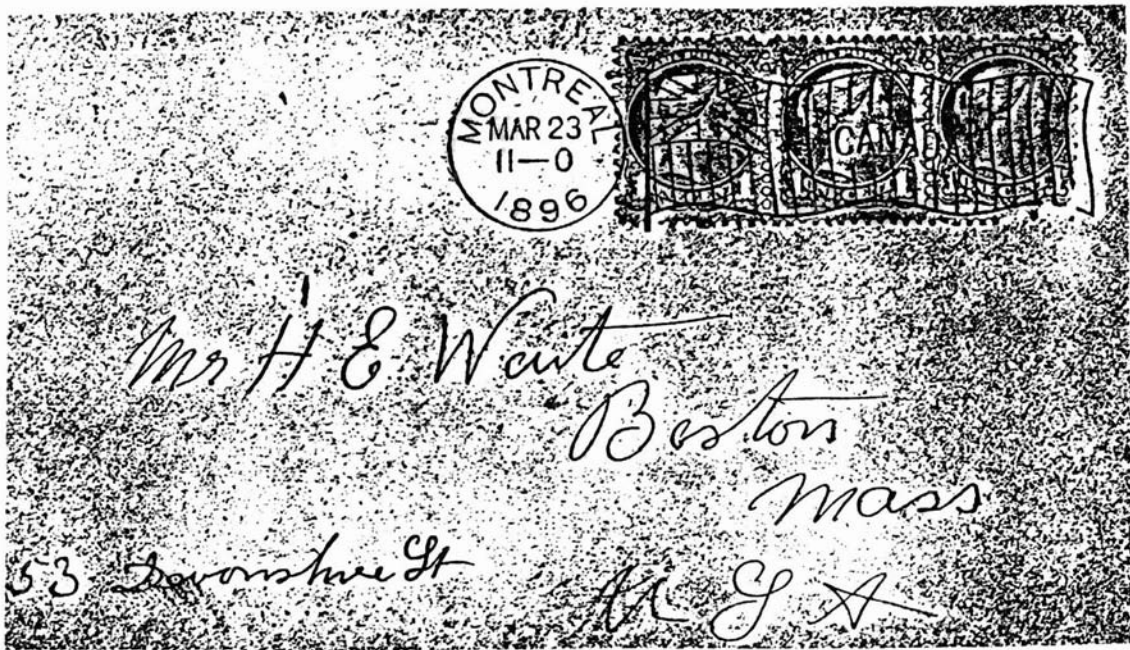 MONTREAL
MAR 23
11—0
1896
CANADA
1 1 1
Mr H E Waite
Boston
Mass
53 Devonshire St
U S A